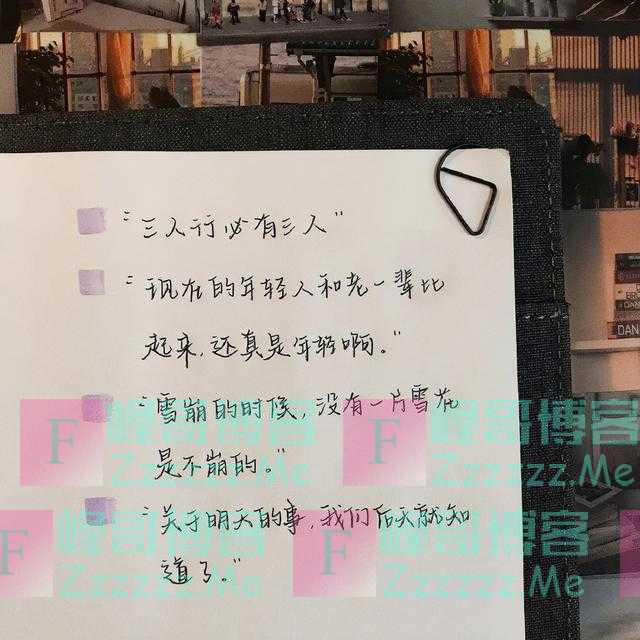 "三人行必有三人"
"现在的年轻人和老一辈比
起来,还真是年轻啊。"
"雪崩的时候,没有一片雪花
是不崩的。"
"关于明天的事,我们后天就知
道了。"
DAN
F 峰哥博客
Zzzzzz.Me
F 峰哥博客
Zzzzzz.Me
F 峰哥博客
Zzzzzz.Me
F 峰哥博客
Zzzzzz.Me